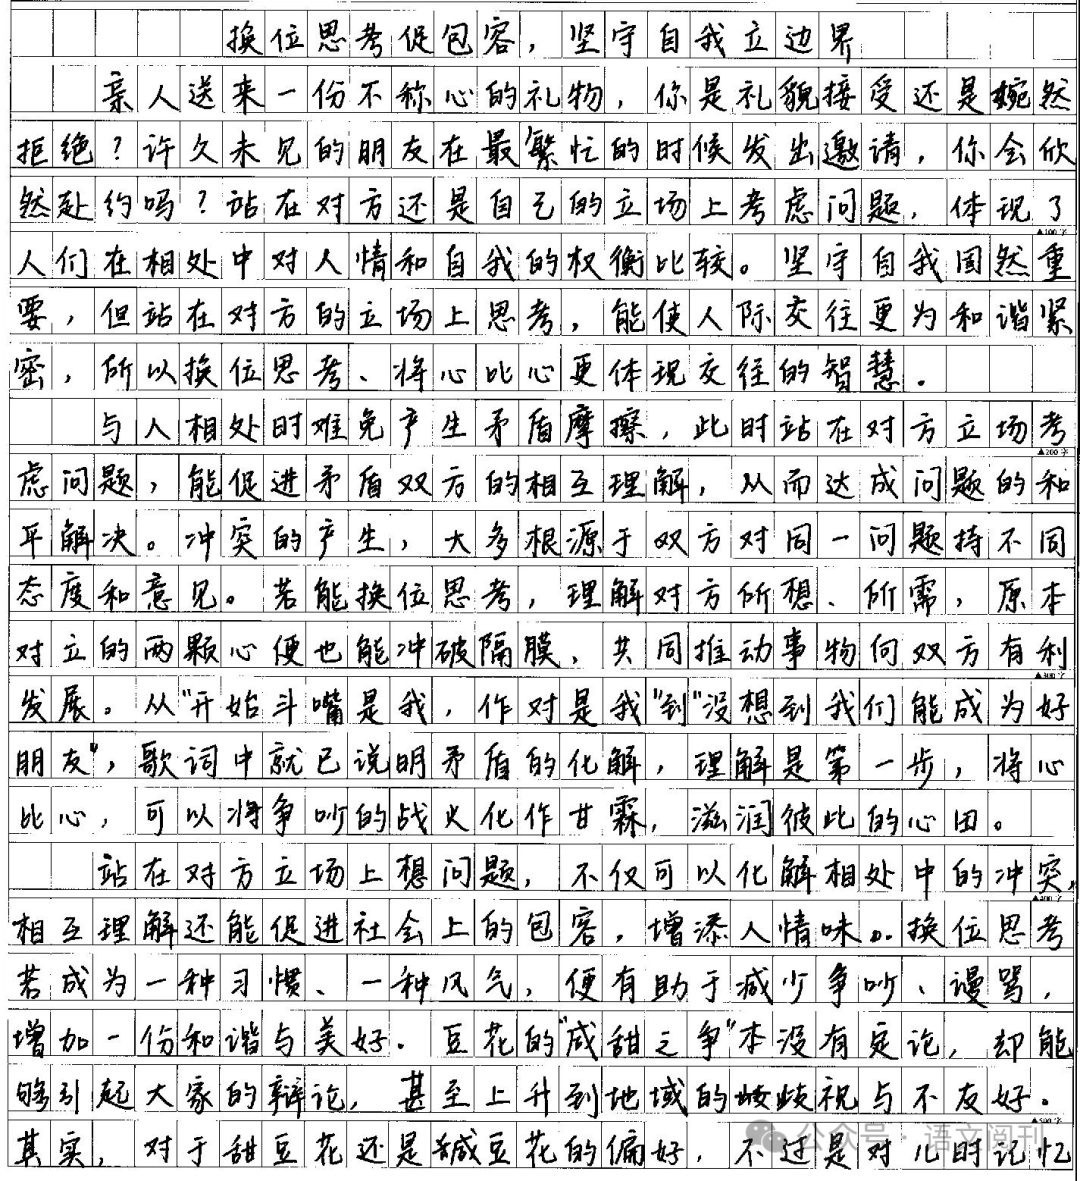 换位思考促包容，坚守自我立边界
亲人送来一份不称心的礼物，你是礼貌接受还是婉然
拒绝？许久未见的朋友在最繁忙的时候发出邀请，你会欣
然赴约吗？站在对方还是自己的立场上考虑问题，体现了
▲100字
人们在相处中对人情和自我的权衡比较。坚守自我固然重
要，但站在对方的立场上思考，能使人际交往更为和谐紧
密，所以换位思考、将心比心更体现交往的智慧。
与人相处时难免产生矛盾摩擦，此时站在对方立场考
▲200字
虑问题，能促进矛盾双方的相互理解，从而达成问题的和
平解决。冲突的产生，大多根源于双方对同一问题持不同
态度和意见。若能换位思考，理解对方所想、所需，原本
对立的两颗心便也能冲破隔膜，共同推动事物向双方有利
▲300字
发展。从"开始斗嘴是我，作对是我"到"没想到我们能成为好
朋友"，歌词中就已说明矛盾的化解，理解是第一步，将心
比心，可以将争吵的战火化作甘霖，滋润彼此的心田。
站在对方立场上想问题，不仅可以化解相处中的冲突，
▲400字
相互理解还能促进社会上的包容，增添人情味。换位思考
若成为一种习惯、一种风气，便有助于减少争吵、谩骂，
增加一份和谐与美好。豆花的"咸甜之争"本没有定论，却能
够引起大家的辩论，甚至上升到地域的歧视与不友好。
▲500字
其实，对于甜豆花还是咸豆花的偏好，不过是对儿时记忆
公众号·语文阅刊